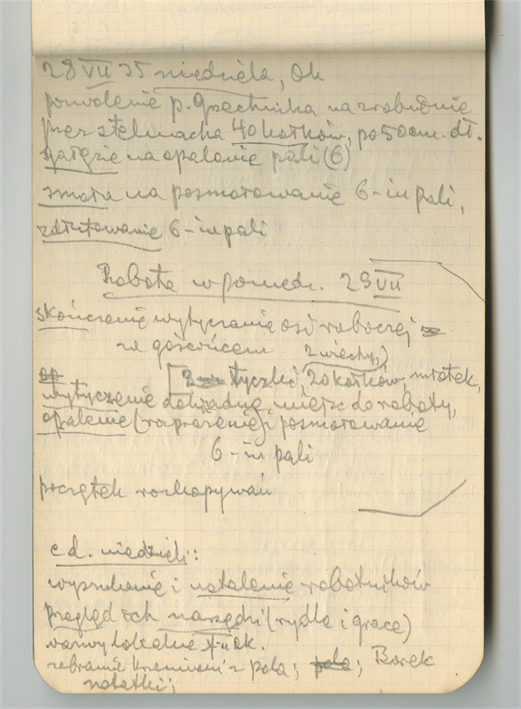 28 VII 35 niedziela,
pozwolenie p. Grzechnika na zrobienie
przez stelmacha 40 kołków, po 50 cm. dł.
gałęzie na opalenie pali (6)
smoła na posmarowanie 6-iu pali,
zdłutowanie 6-iu pali
Robota w poniedz. 29 VII
skończenie wytyczanie osi roboczej
za gościńcem 2 wiechy,)
tyczki, 20 kołków, młotek,
wytyczenie dokładne miejsc do roboty,
opalenie i posmarowanie
6-iu pali
początek rozkopywań
c.d. niedzieli:
wyszukanie i ustalenie robotników
przegląd ich narzędzi (rydle i grace)
lokalne
zebranie krzemieni z pola; pola; Borek
notatki;